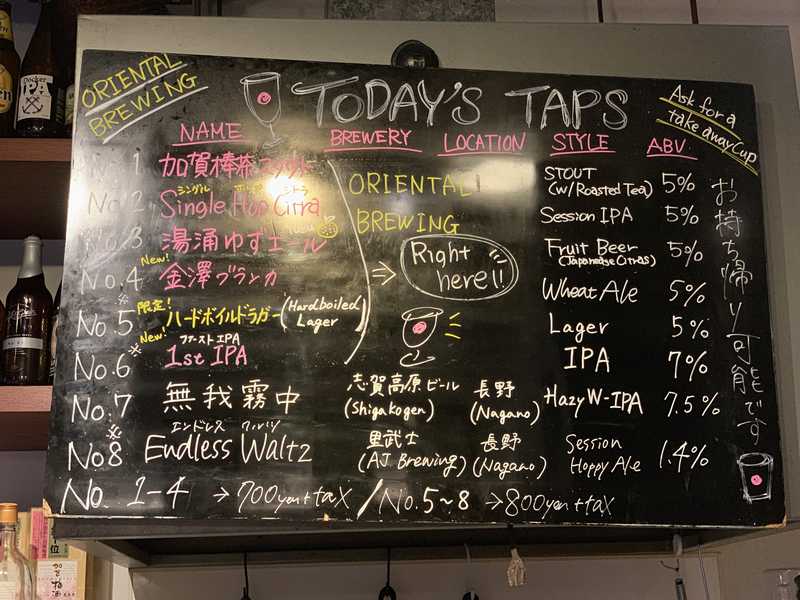 ORIENTAL
BREWING
TODAY'S TAPS
Ask for a
take away cup
NAME BREWERY LOCATION STYLE ABV
No.1 加賀棒茶スタウト STOUT (w/Roasted Tea) 5%
シングル ホップ シトラ
No.2 Single Hop Citra Session IPA 5%
No.3 湯涌ゆずエール Fruit Beer (Japanese Citrus) 5%
New!
No.4 金澤ブランカ Wheat Ale 5%
ORIENTAL
BREWING
Right
here!!
限定!
No.5 ハードボイルドラガー (Hardboiled Lager) Lager 5%
New! ファースト IPA
No.6 1st IPA IPA 7%
No.7 無我霧中 志賀高原ビール (Shigakogen) 長野 (Nagano) Hazy W-IPA 7.5%
エンドレス ワルツ
No8 Endless Waltz 里武士 (AJ Brewing) 長野 (Nagano) Session Hoppy Ale 1.4%
No. 1-4 → 700yen+tax / No.5~8 → 800yen+tax
お持ち帰り可能です